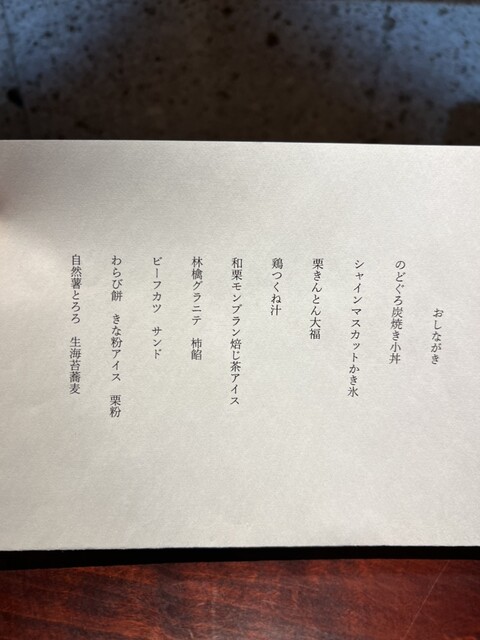 おしながき
のどぐろ炭焼き小丼
シャインマスカットかき氷
栗きんとん大福
鶏つくね汁
和栗モンブラン焙じ茶アイス
林檎グラニテ　柿餡
ビーフカツ　サンド
わらび餅　きな粉アイス　栗粉
自然薯とろろ　生海苔蕎麦